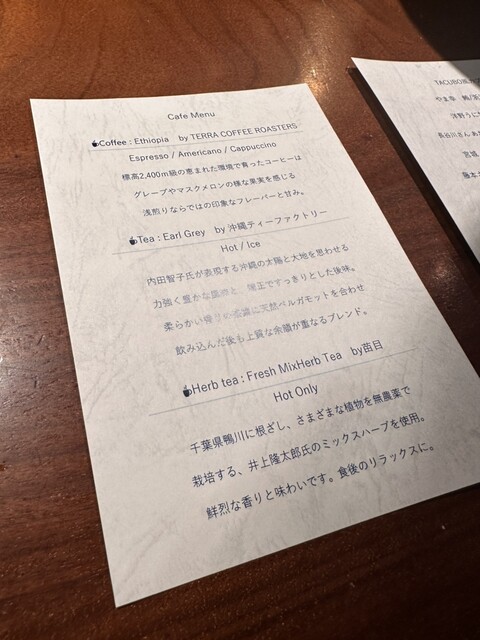 Cafe Menu
Coffee : Ethiopia by TERRA COFFEE ROASTERS
Espresso / Americano / Cappuccino
標高2,400m級の恵まれた環境で育ったコーヒーは
グレープやマスクメロンの様な果実を感じる
浅煎りならではの印象なフレーバーと甘み。
Tea : Earl Grey by 沖縄ティーファクトリー
Hot / Ice
内田智子氏が表現する沖縄の太陽と大地を思わせる
力強く豊かな、端正ですっきりとした後味。
柔らかい香りの紅茶に天然ベルガモットを合わせ
飲み込んだ後も上質な余韻が重なるブレンド。
Herb tea : Fresh MixHerb Tea by苗目
Hot Only
千葉県鴨川に根ざし、さまざまな植物を無農薬で
栽培する、井上隆太郎氏のミックスハーブを使用。
鮮烈な香りと味わいです。食後のリラックスに。
TACUBO
やま幸
長谷川さん
宮城
藤本